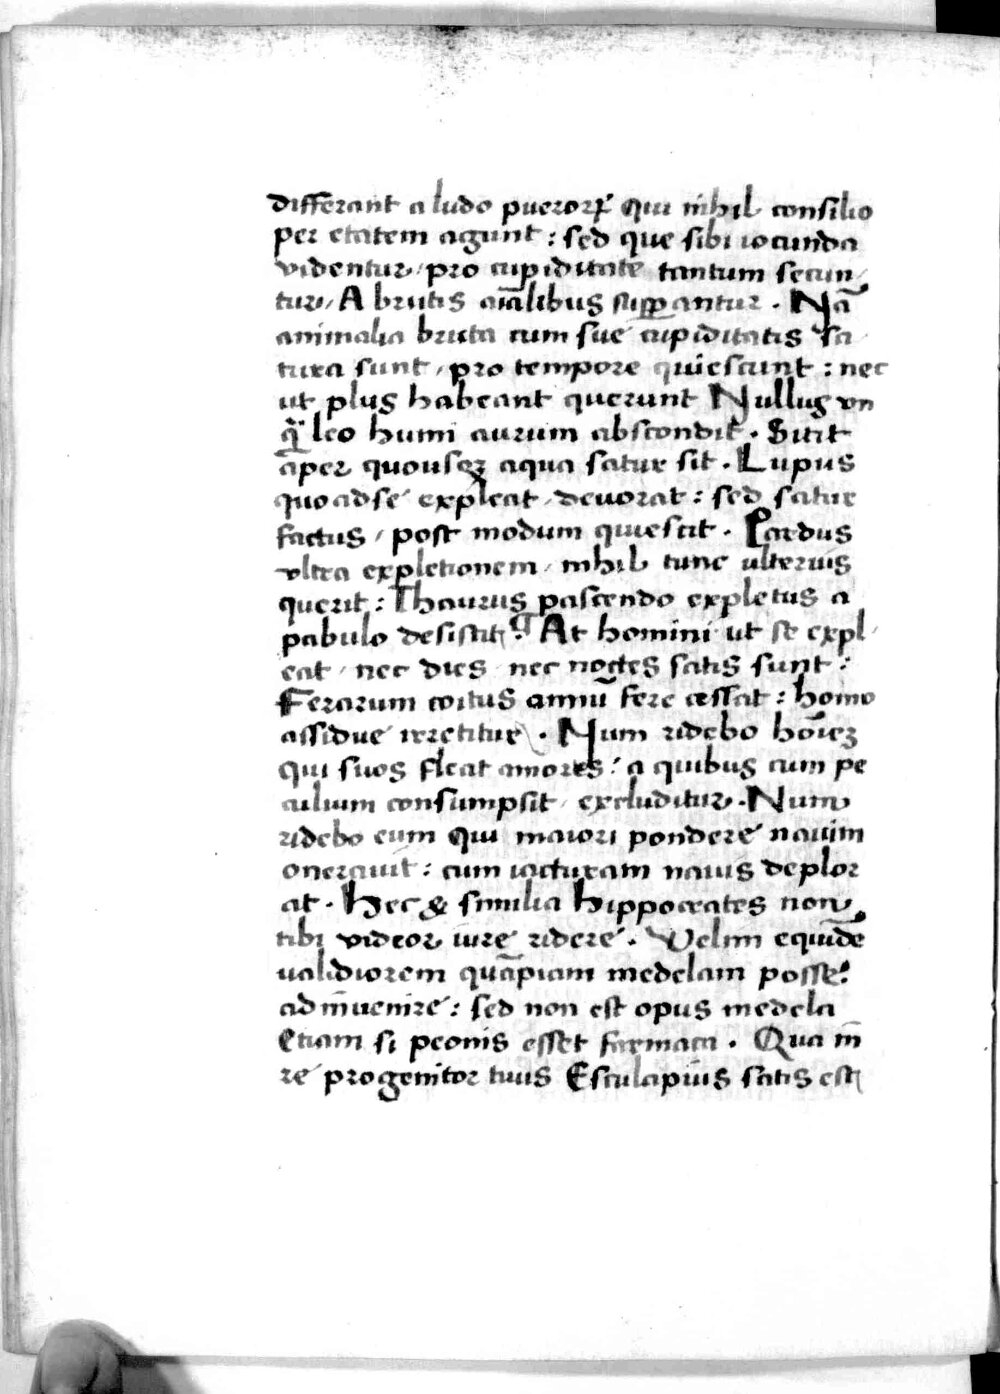 differant a ludo pueroꝝ qui nihil consilio
per etatem agunt : sed que sibi iocunda
videntur / pro cupiditate tantum secun
tur / A brutis aīalibus suꝑantur . Nā
animalia bruta cum sue cupiditatis sa
tura sunt / pro tempore quiescunt : nec
ut plus habeant querunt Nullus vn
qᷓ leo humi aurum abscondit . Sitit
aper quousqꝫ aqua satur sit . Lupus
quoad se expleat / devorat : sed satur
factus / post modum quiescit . Pardus
vltra expletionem / nihil tunc ulterius
querit : Thaurus pascendo expletus a
pabulo desistit ? At homini ut se expl
eat / nec dies / nec noctes satis sunt :
Ferarum coitus annū fere cessat : homo
assidue irretitur . Num ridebo hōīeꝫ
qui suos fleat amores : a quibus cum pe
culium consumpsit / excluditur . Num
ridebo eum qui maiori pondere navim
oneravit : cum iacturam navis deplor
at . Hec & similia Hippocrates non
tibi videor iure ridere . Velim equidē
validiorem quāpiam medelam posse
ad īnvenire : sed non est opus medela
Etiam si peonis esset farmaca . Qua in
re progenitor tuus Esculapius satis est